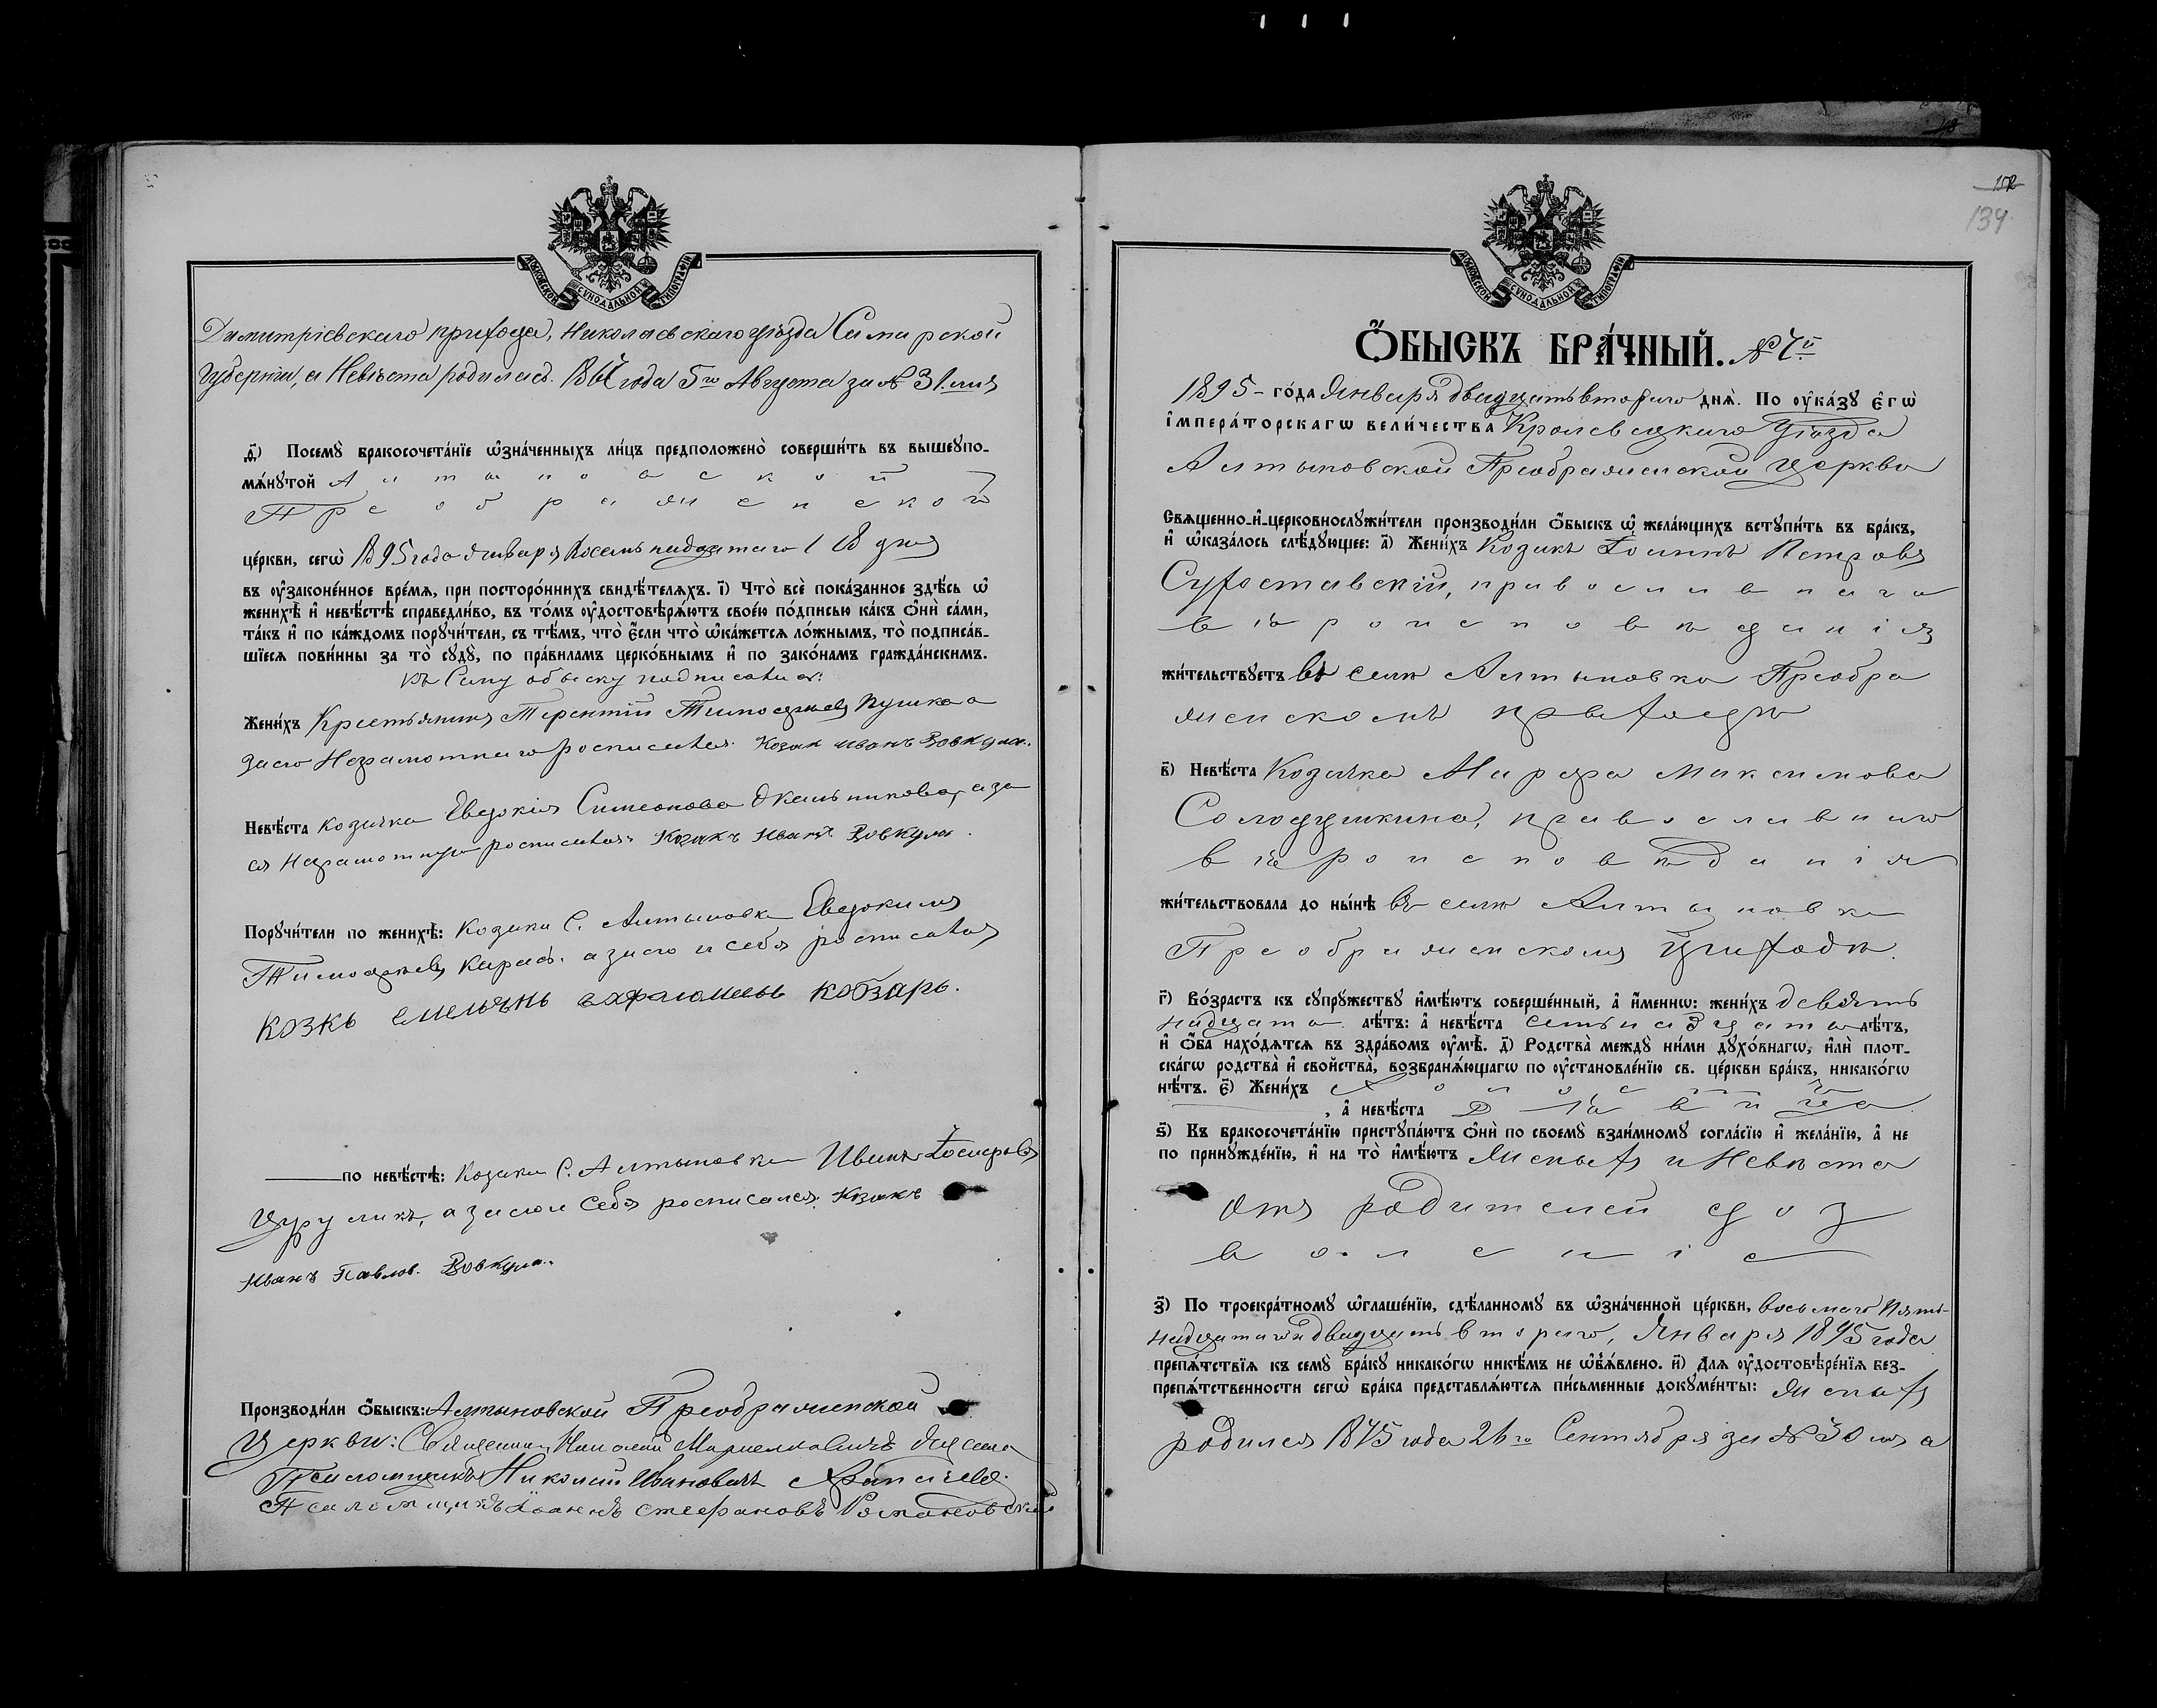 МОСКОВСКОЙ СѴНОДАЛЬНОЙ ТИПОГРАФІИ
Димитріевскаго прихода, Николаевскаго уѣзда Самарской
Губерніи, а Невѣста родилась года 5го Августа за № 31мъ
д҃) Посемꙋ̀ бракосочета́нїе ѡ҆зна́ченныхъ ли́цъ предположено̀ соверши́ть въ вышеꙋпо-
мѧ́нꙋтой Алтыновской
Преображенской
це́ркви, сегѡ̀ года Января Восемнадцатаго 18 дня
въ ᲂу҆зако́ненное вре́мѧ, при посторо́ннихъ свидѣ́телѧхъ. і҃) Что̀ всѐ пока́занное здѣ́сь ѡ҆
женихѣ̀ и҆ невѣ́стѣ справедли́во, въ то́мъ ᲂу҆достовѣрѧ́ютъ свое́ю по́дписью ка́къ ѻ҆нѝ са́ми,
та́къ и҆ по ка́ждомъ порꙋчи́тели, съ тѣ́мъ, что̀ є҆́сли что̀ ѡ҆ка́жетсѧ ло́жнымъ, то̀ подписа́в-
шїесѧ пови́нны за то̀ сꙋдꙋ̀, по пра́виламъ церко́внымъ и҆ по зако́намъ гражда́нскимъ.
къ Сему обыску подписались:
Жени́хъ Крестьянинъ Терентій Тимофеевъ Пушка а
за его Неграмотнаго росписался Козак Иванъ Вовкула.
Невѣ́ста козачка Евдокія Симеонова, а за
ея неграмотную росписался Козакъ Иванъ Вовкула.
Порꙋчи́тели по женихѣ̀: Козаки С. Алтыновки Евдокимъ
Тимофеевъ Карась. а за его и себя росписался
козкъ емельянь кобзарь.
по невѣ́стѣ: Козаки С. Алтыновки Иванъ
Цуруликъ, а за его и себя росписался: Козакъ
Иванъ Павлов. Вовкула.
Производи́ли ѻ҆́быскъ: Алтыновской Преображенской
Церкви: Священникъ
Псаломщикъ Николай Ивановичъ
Псаломщикъ Іоаннъ Стефановъ Романовскій
152
134
МОСКОВСКОЙ СѴНОДАЛЬНОЙ ТИПОГРАФІИ
Ѻ҆́БЫСКЪ БРА́ЧНЫЙ. № 7й
1895 - го́да Января двадцать втораго днѧ̀. По ᲂу҆ка́зꙋ є҆гѡ̀
і҆мпера́торскагѡ вели́чества Кролевецкаго Уѣзда
Алтыновской Преображенской Церкви
Свѧще́нно-и҆-церковнослꙋжи́тели производи́ли ѻ҆́быскъ ѡ҆ жела́ющихъ встꙋпи́ть въ бра́къ,
и҆ ѡ҆каза́лось слѣ́дꙋющее: а҃) Жени́хъ Козакъ Іоаннъ Петровъ
Сухоставскій, православнаго
вѣроисповѣданія
жи́тельствꙋетъ въ селѣ Алтыновка Преобра
женскомъ приходѣ
в҃) Невѣ́ста Козачка Марфа Максимова
Солодушкина, православнаго
вѣроисповѣданія
жи́тельствовала до ны́нѣ въ селѣ Алтыновка
Преображенскомъ приходѣ.
г҃) Во́зрастъ къ сꙋпрꙋ́жествꙋ и҆мѣ́ютъ соверше́нный, а҆ и҆́меннѡ: жени́хъ девят
надцати лѣ́тъ: а҆ невѣ́ста семьнадцати лѣ́тъ,
и҆ ѻ҆́ба нахо́дѧтсѧ въ здра́вомъ ᲂу҆мѣ̀. д҃) Родства̀ междꙋ̀ ни́ми дꙋхо́внагѡ, и҆лѝ плот-
ска́гѡ родства̀ и҆ сво́йства, возбранѧ́ющагѡ по ᲂу҆становле́нїю св. це́ркви бра́къ, никако́гѡ
нѣ́тъ. є҃) Жени́хъ Холостъ
, а҆ невѣ́ста Дѣвица
ѕ҃) Къ бракосочета́нїю пристꙋпа́ютъ ѻ҆нѝ по своемꙋ̀ взаи́мномꙋ согла́сїю и҆ жела́нїю, а҆ не
по принꙋжде́нїю, и҆ на то̀ и҆мѣ́ютъ Женихъ и Невѣста
отъ родителей доз
воленіе
з҃) По троекра́тномꙋ ѡ҆глаше́нїю, сдѣ́ланномꙋ въ ѡ҆зна́ченной це́ркви, восьмаго Пять-
надцатаго и двадцать втораго, Января 1895 года
препѧ́тствїѧ къ семꙋ̀ бра́кꙋ никако́гѡ никѣ́мъ не ѡ҆б̾ѧ́влено. и҃) Длѧ ᲂу҆достовѣре́нїѧ без-
препѧ́тственности сегѡ̀ бра́ка представлѧ́ютсѧ пи́сьменные докꙋме́нты: Женихъ
родился 1875 года 26го Сентября за № 30мъ а